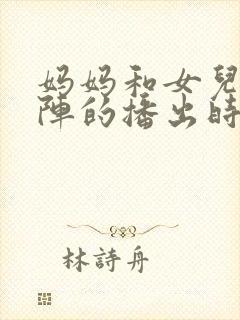 妈妈和女兒
陣的播出時
林詩舟